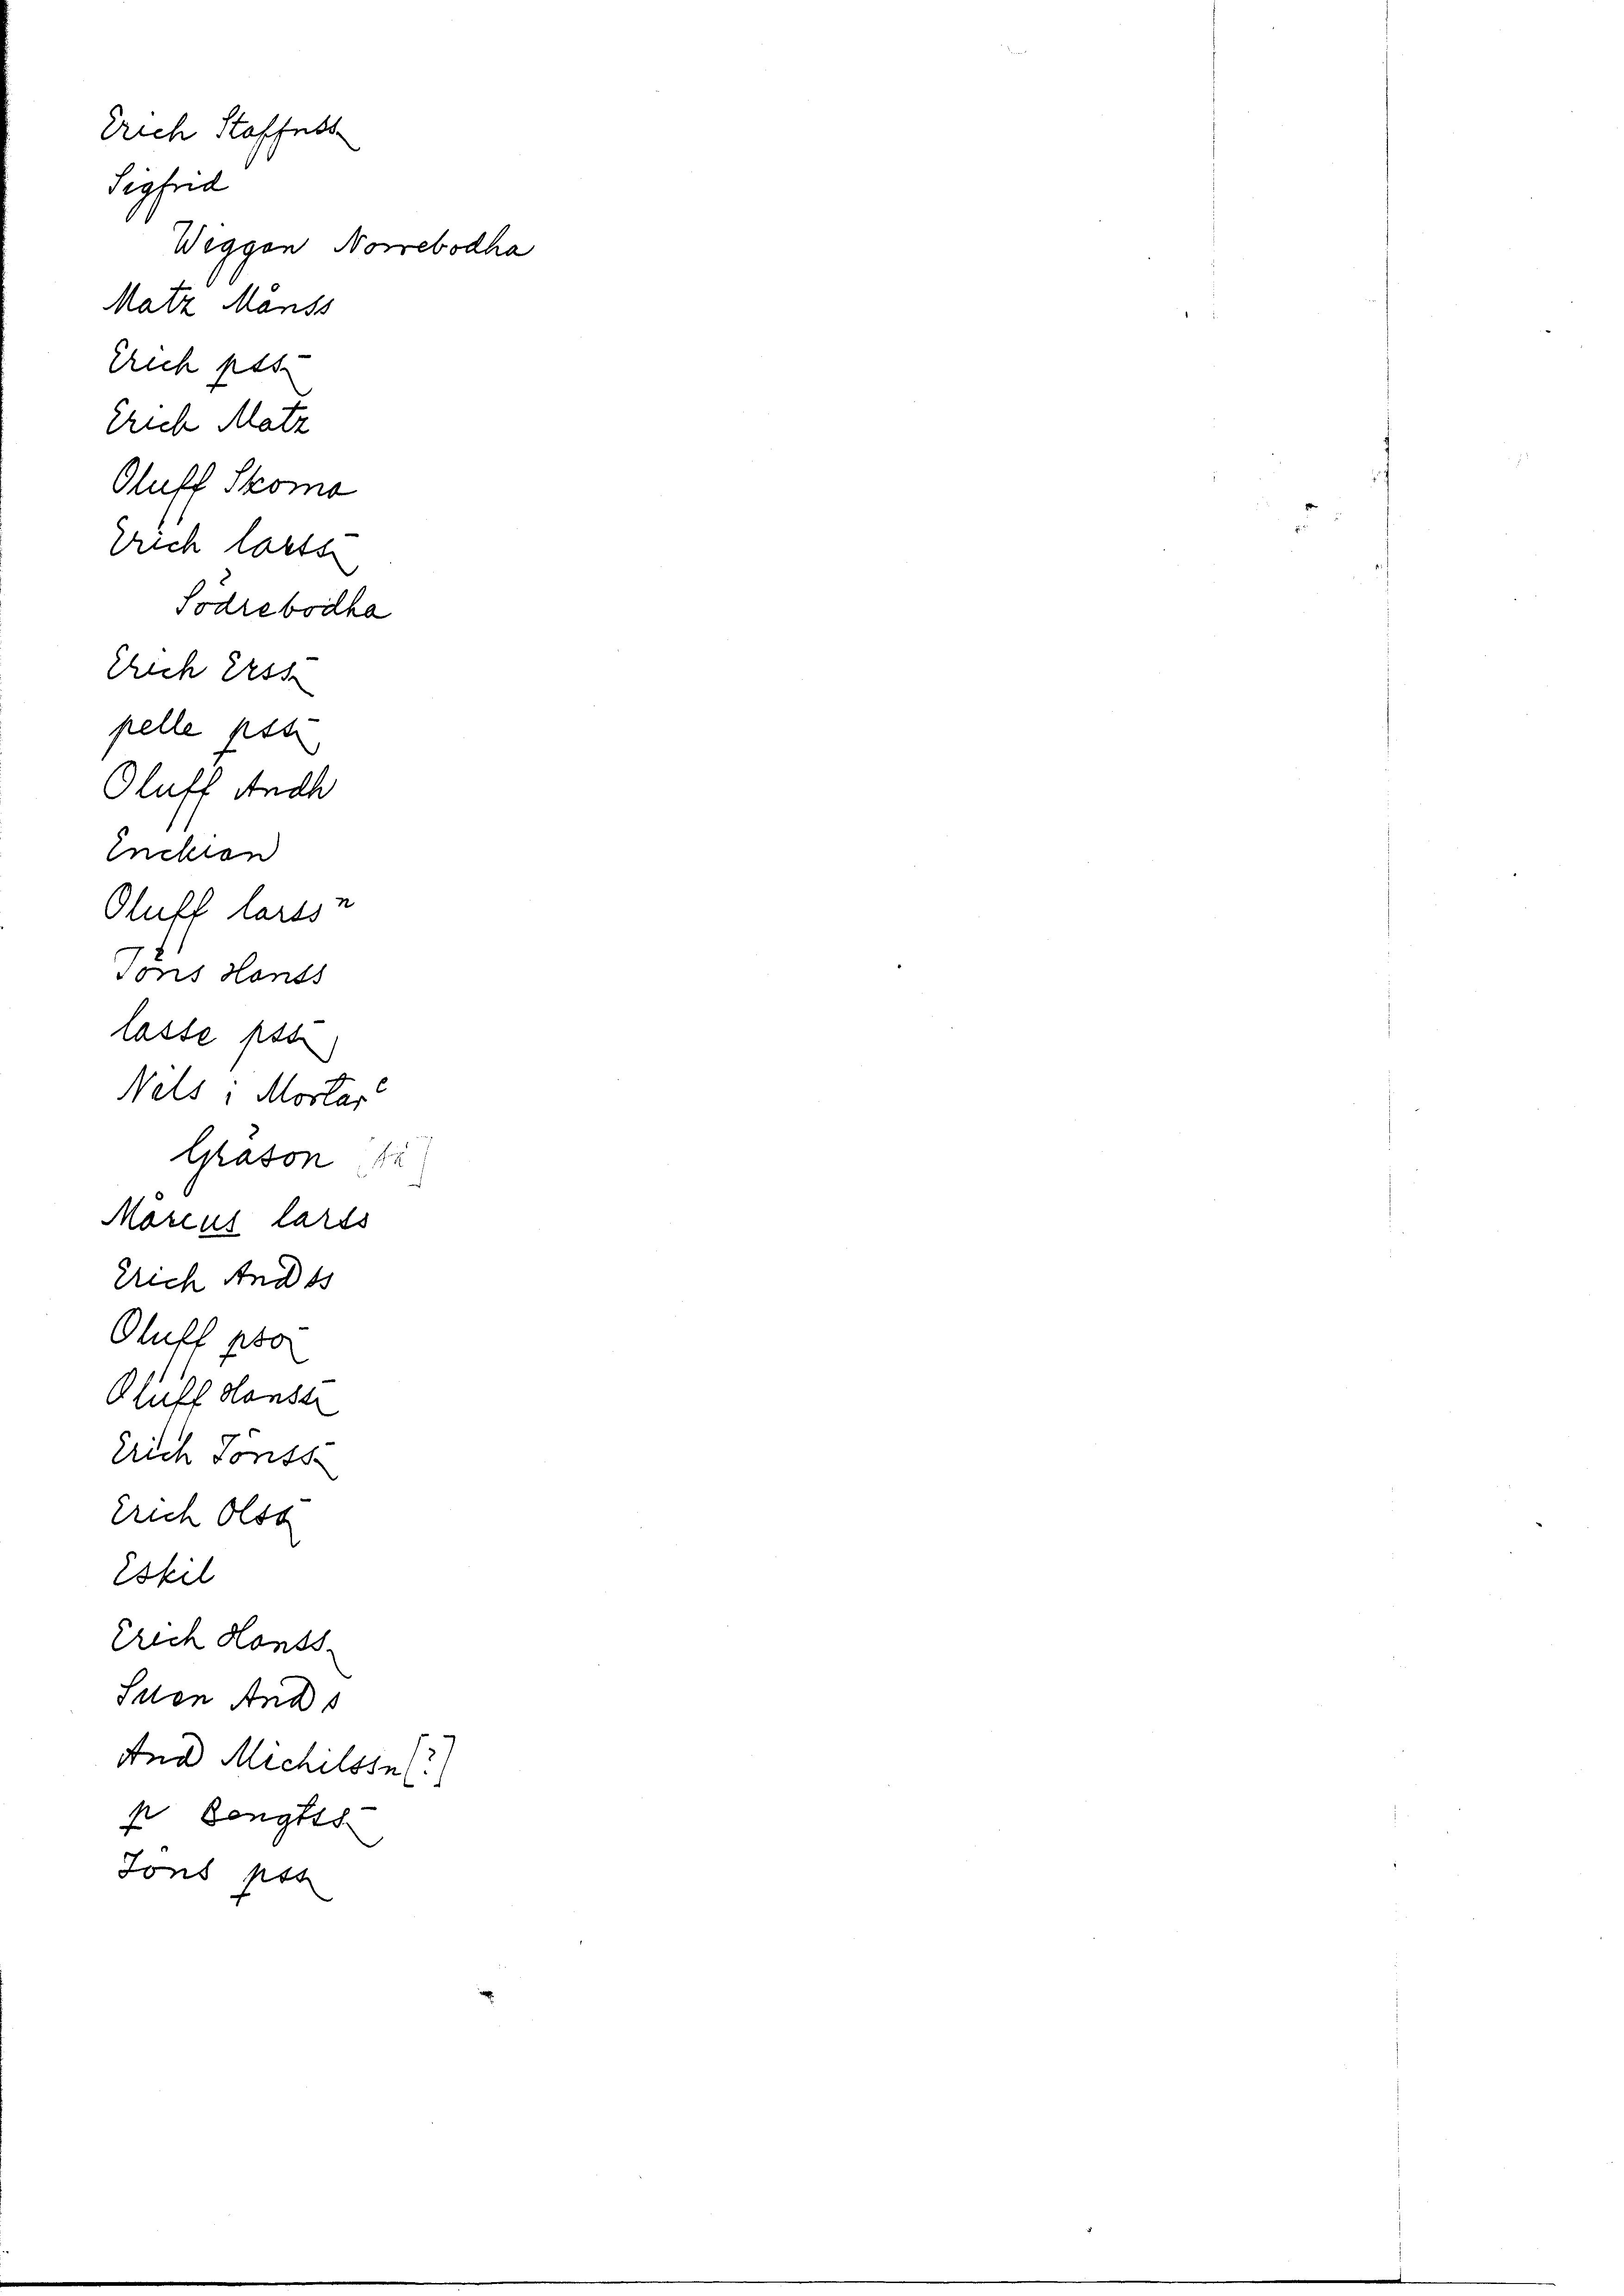 Erich Staffnss
Sigfrid
Wiggen Norrebodha
Matz Månss
Erich pss
Erich Matz
Oluff Skoma
Erich larss
Södrebodha
Erich Erss
pelle pss
Oluff Andh
Enckian
Oluff larssn
Jöns Hanss
lasse pss
Nils i Mortar
Gråson
Marcus larss
Erich And ss
Oluff pso
Oluff Hanss
Erich Jönss
Erich Olss
Eskil
Erich Hanss
Suen And s
And Michilssn (?)
p Bengtss
Jöns pss